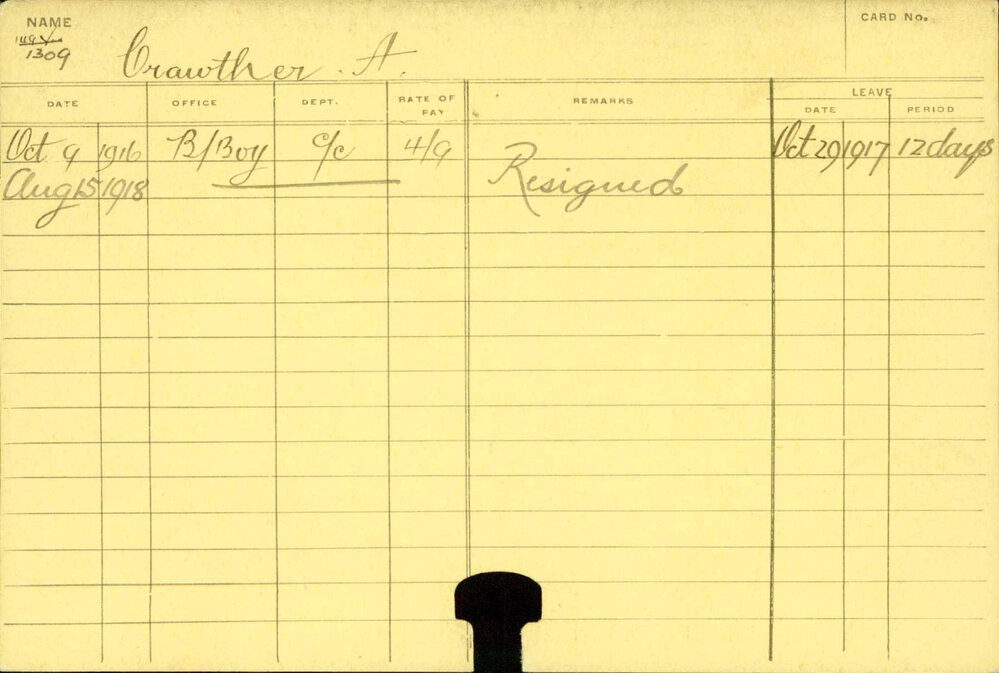 NAME
CARD No.
1309
Crawther. A.
LEAVE
DATE OFFICE DEPT. RATE OF PAY REMARKS DATE PERIOD
Oct 9 1916 B/Boy c/c 4/9 Oct 29 1917 12 days
Aug 15 1918 Resigned